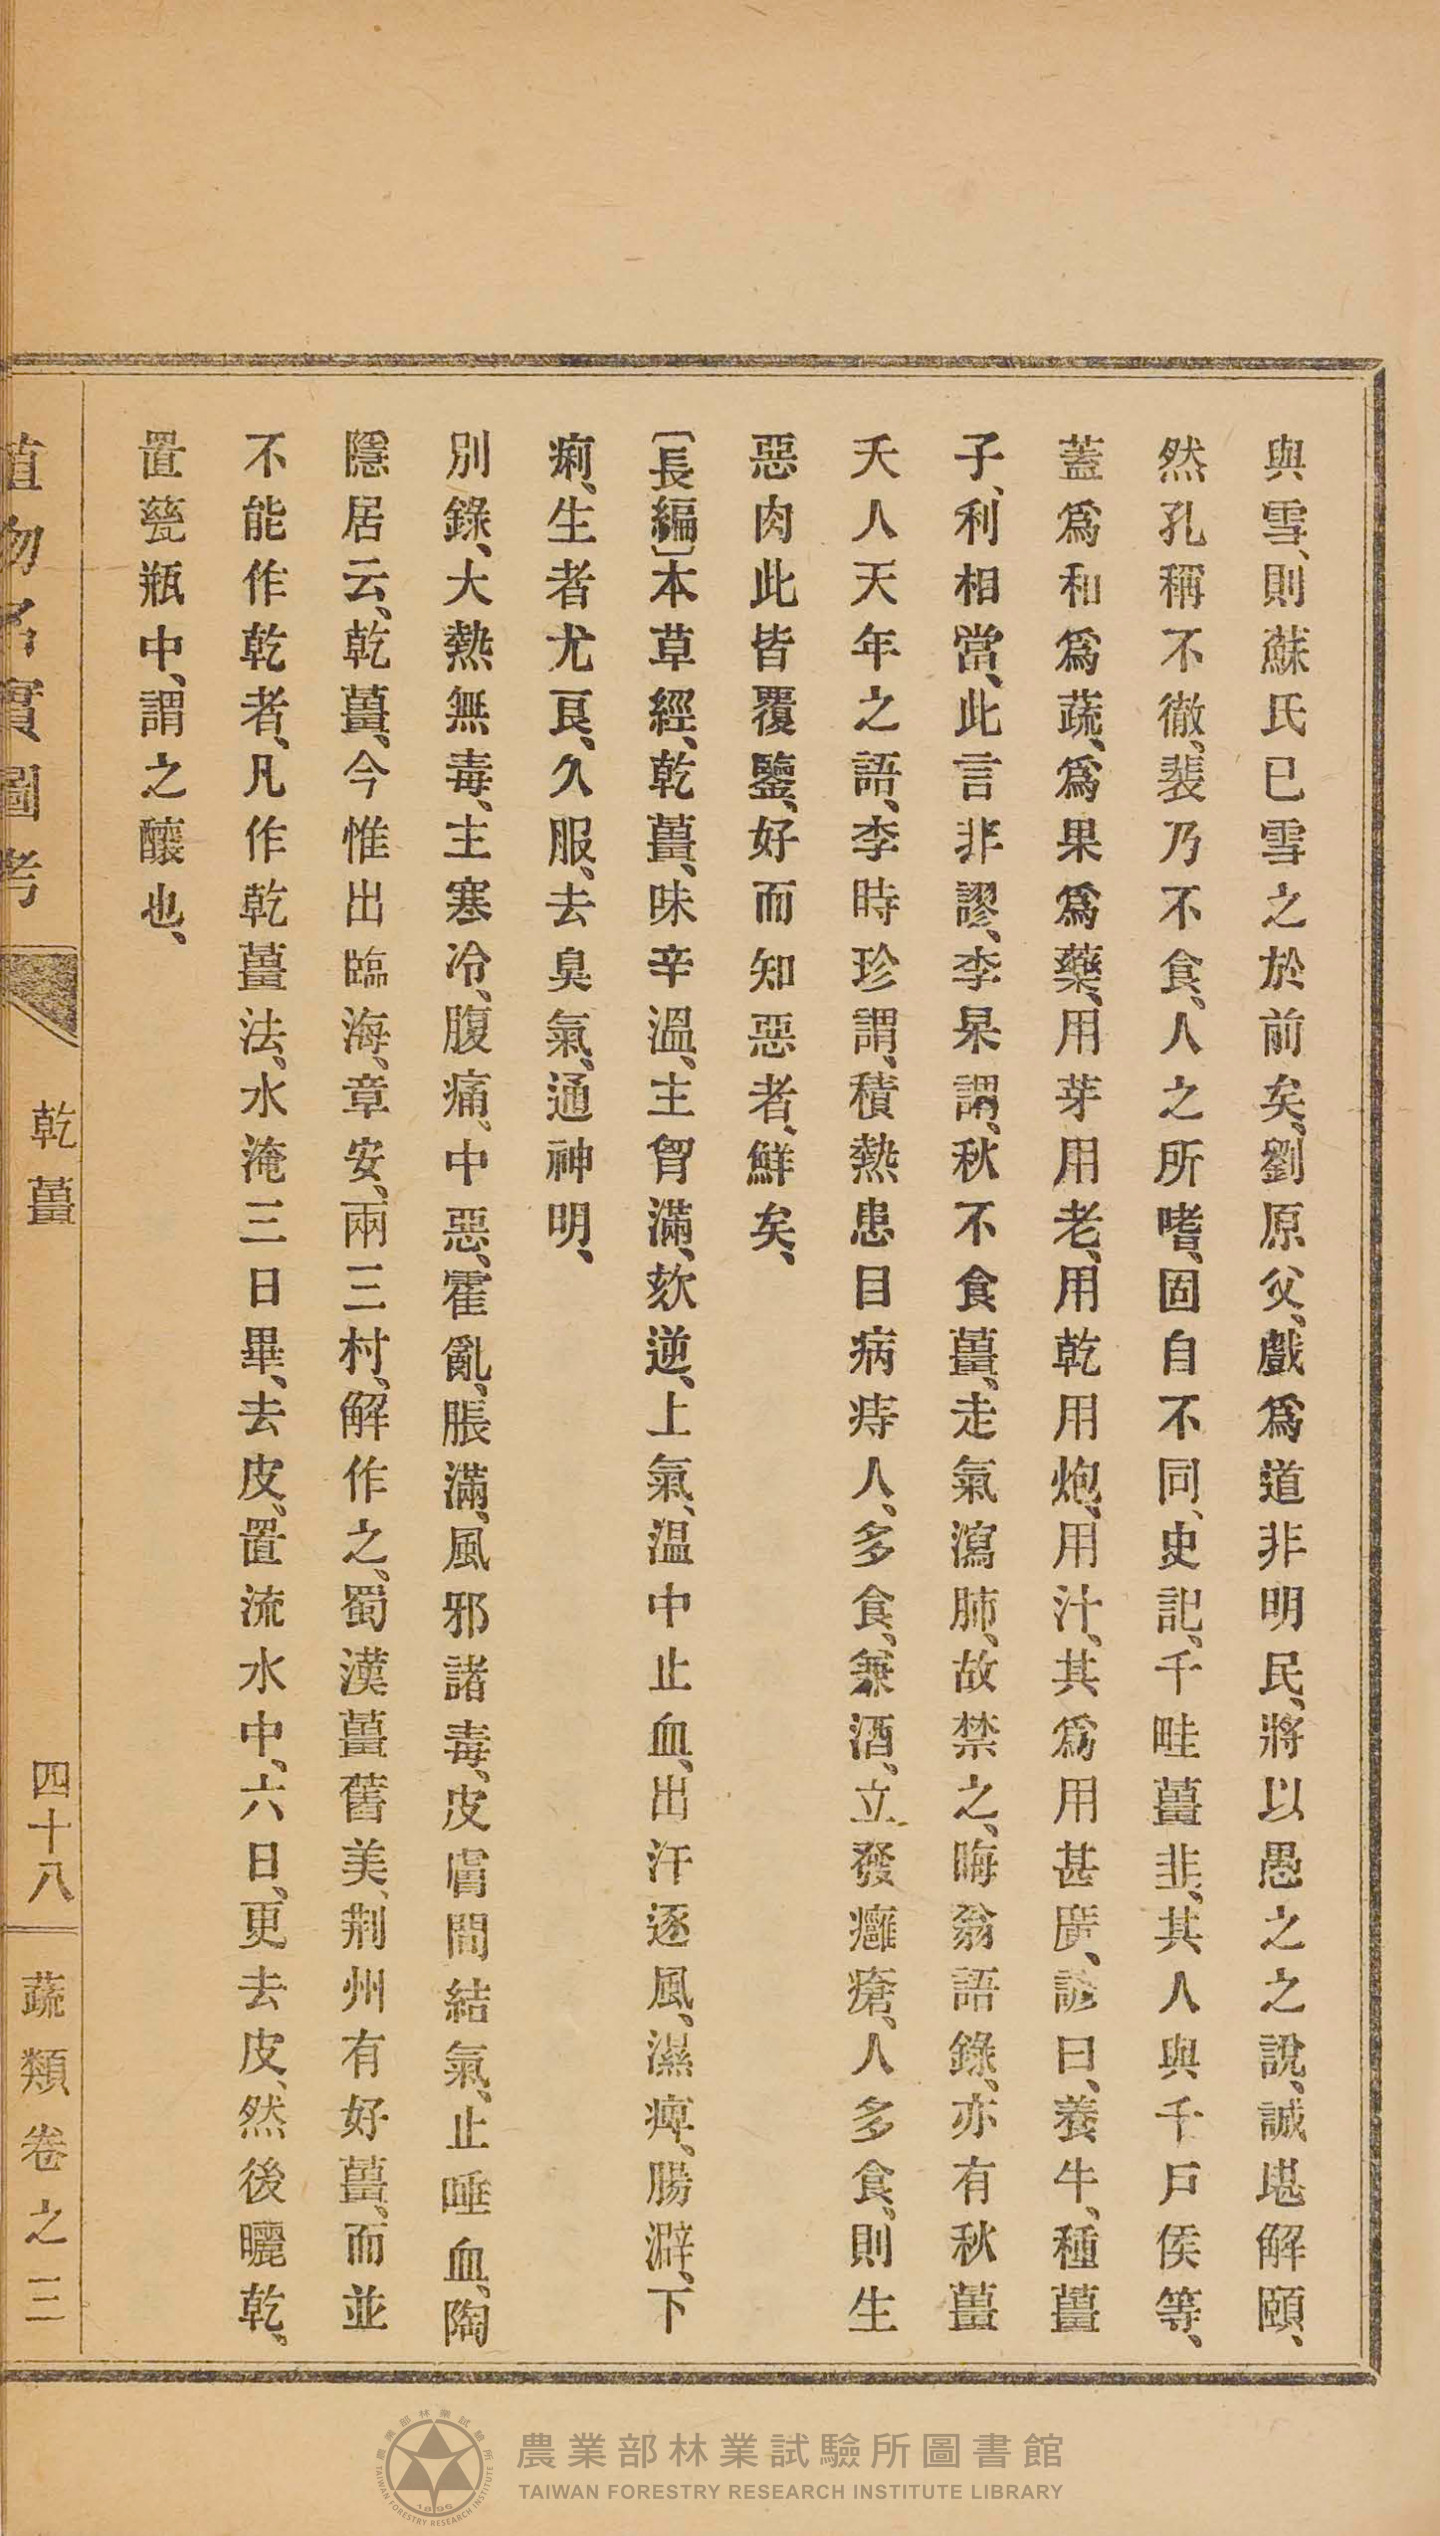 與雪、則蘇氏已雪之於前矣、劉原父、戲爲道非明民、將以愚之之說、誠堪解頤、
然孔稱不徹、裴乃不食、人之所嗜、固自不同、史記、千畦薑韭、其人與千戶侯等、
蓋爲和爲蔬、爲果爲藥、用芽用老、用乾用炮、用汁、其爲用甚廣、諺曰、養牛、種薑
子、利相當、此言非謬、李杲謂、秋不食薑、走氣瀉肺、故禁之、晦翁語錄、亦有秋薑
夭人天年之語、李時珍謂、積熱患目病痔人、多食、兼酒、立發癰瘡、人多食、則生
惡肉此皆覆鑒、好而知惡者、鮮矣、
〔長編〕本草經、乾薑、味辛溫、主胷滿、欬逆、上氣、温中止血、出汗逐風、濕痺、腸澼、下
痢、生者尤良、久服、去臭氣、通神明、
別錄、大熱無毒、主寒冷、腹痛、中惡、霍亂、脹滿、風邪諸毒、皮膚間結氣、止唾血、陶
隱居云、乾薑、今惟出臨海、章安、兩三村、解作之、蜀漢薑舊美、荆州有好薑、而並
不能作乾者、凡作乾薑法、水淹三日畢、去皮、置流水中、六日、更去皮、然後曬乾、
置甆瓶中、謂之釀也、
植物名實圖考 乾薑 四十八 蔬類卷之三
農業部林業試驗所圖書館
TAIWAN FORESTRY RESEARCH INSTITUTE LIBRARY
農業部林業試驗所
TAIWAN FORESTRY RESEARCH INSTITUTE
1896